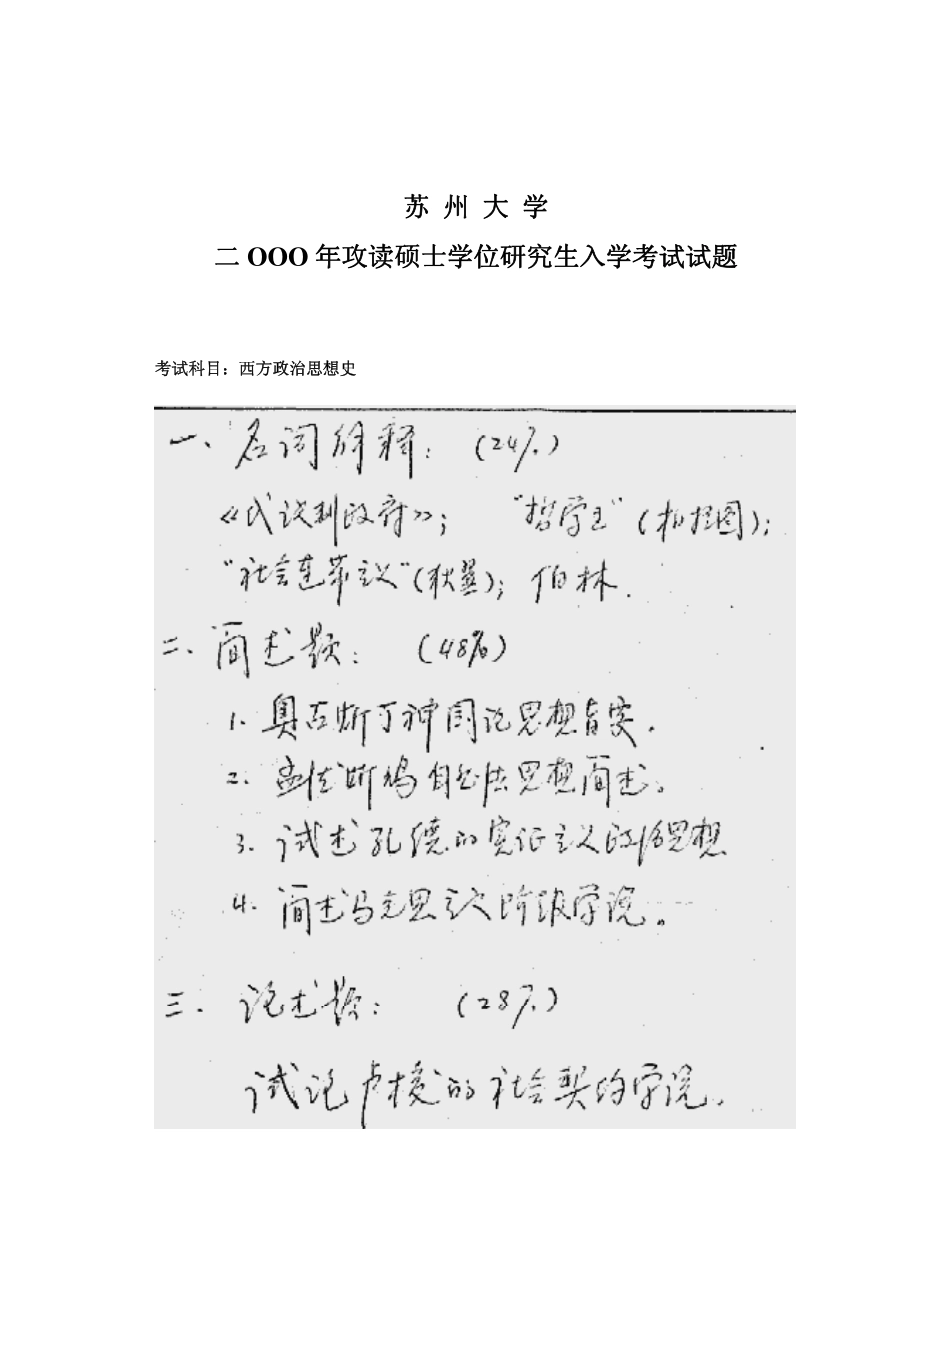 苏 州 大 学
二 OOO 年攻读硕士学位研究生入学考试试题
考试科目：西方政治思想史
一、名词解释：（24%）
《代议制政府》；“哲学王”（柏拉图）；
“社会连带主义”（狄骥）；伯林.
二、简述题：（48%）
1. 奥古斯丁神国论思想旨要.
2. 孟德斯鸠自由法思想简述。
3. 试述孔德的实证主义政治思想
4. 简述马克思主义阶级学说。
三. 论述题：（28%）
试论卢梭的社会契约学说.